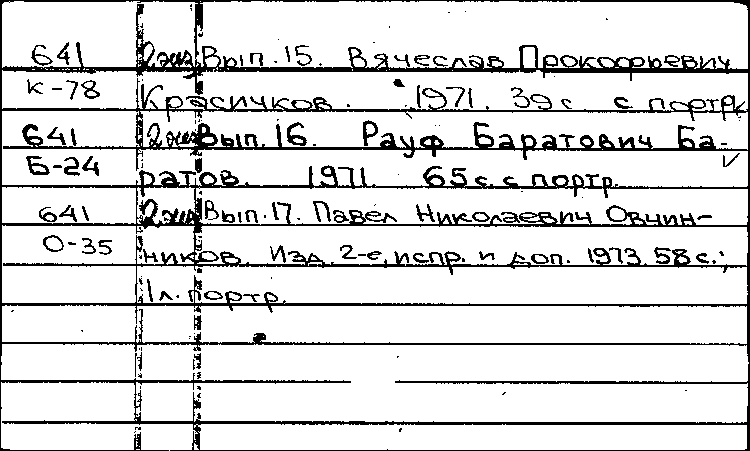 641 2 экз Вып. 15. Вячеслав Прокофьевич
К-78 Красичков. 1971. 39 с. с портр.
641 2 экз Вып. 16. Рауф Баратович Ба-
Б-24 ратов. 1971. 65 с. с портр.
641 2 экз Вып. 17. Павел Николаевич Овчин-
О-35 ников. Изд. 2-е, испр. и доп. 1973. 58 с.;
1 л. портр.